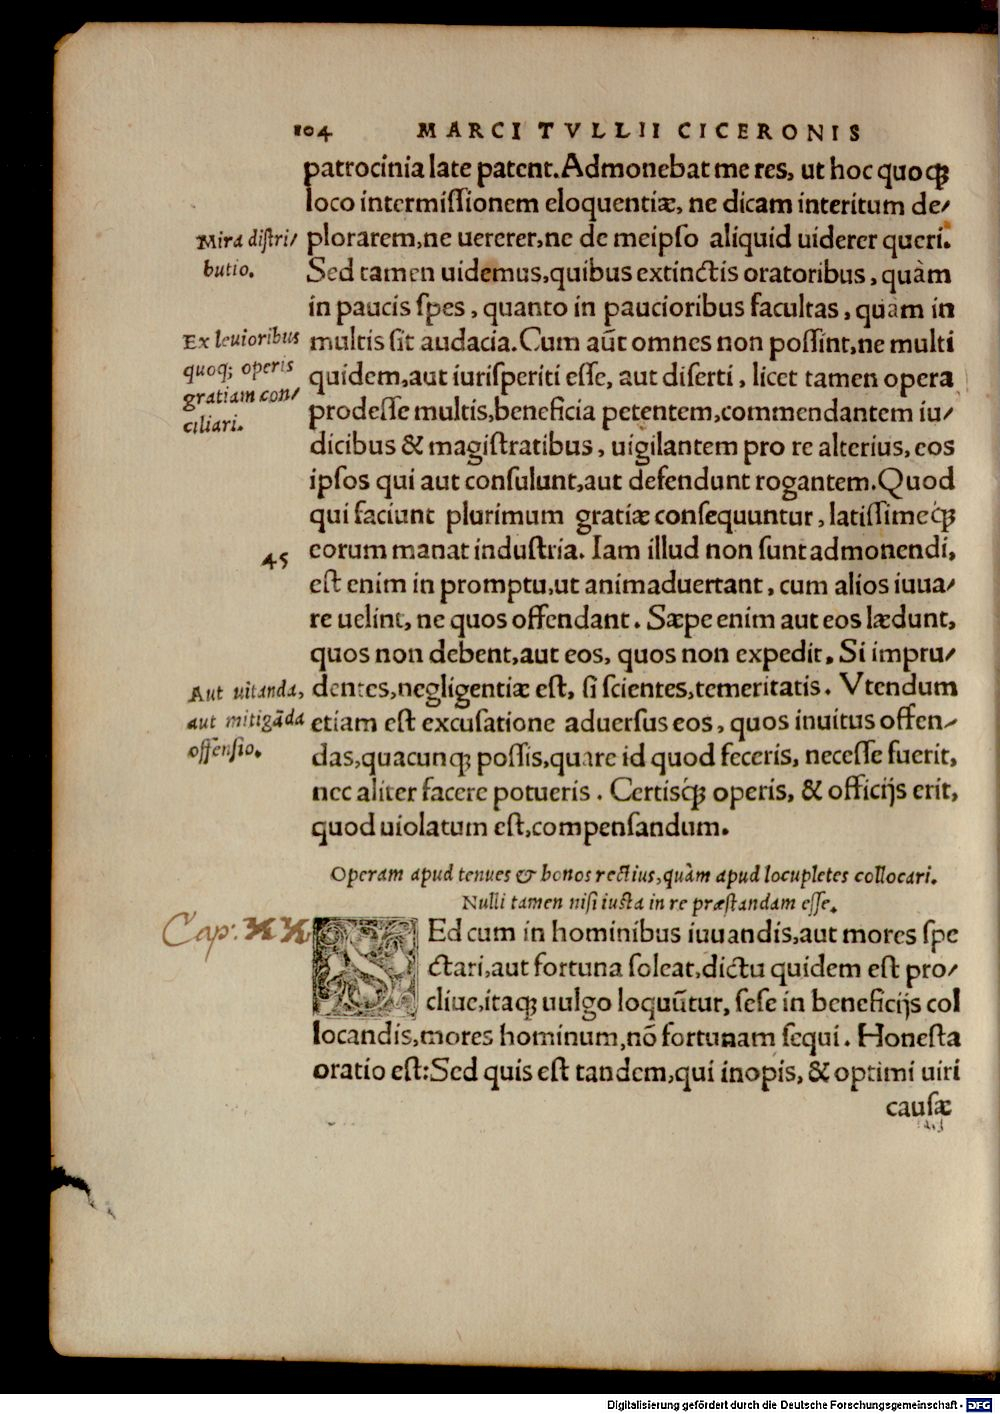 104 MARCI TVLLII CICERONIS
patrocinia late patent. Admonebat me res, ut hoc quoq;
loco intermiſſionem eloquentiæ, ne dicam interitum de/
plorarem, ne uererer, ne de meipſo aliquid uiderer queri.
Mira diſtri/
butio.
Sed tamen uidemus, quibus extinctis oratoribus, quàm
in paucis ſpes, quanto in paucioribus facultas, quàm in
Ex leuioribus
quoq; operis
gratiam con/
ciliari.
multis ſit audacia. Cum aūt omnes non poſſint, ne multi
quidem, aut iuriſperiti eſſe, aut diſerti, licet tamen opera
prodeſſe multis, beneficia petentem, commendantem iu/
dicibus & magiſtratibus, uigilantem pro re alterius, eos
ipſos qui aut conſulunt, aut defendunt rogantem. Quod
qui faciunt plurimum gratiæ conſequuntur, latiſſimeq́;
45
eorum manat induſtria. Iam illud non ſunt admonendi,
eſt enim in promptu, ut animaduertant, cum alios iuua/
re uelint, ne quos offendant. Sæpe enim aut eos lædunt,
quos non debent, aut eos, quos non expedit. Si impru/
Aut uitanda,
aut mitigāda
offenſio.
dentes, negligentiæ eſt, ſi ſcientes, temeritatis. Vtendum
etiam eſt excuſatione aduerſus eos, quos inuitus offen/
das, quacunq; poſſis, quare id quod feceris, neceſſe fuerit,
nec aliter facere potueris. Certisq́; operis, & officijs erit,
quod uiolatum eſt, compenſandum.
Operam apud tenues & bonos rectius, quàm apud locupletes collocari.
Nulli tamen niſi iuſta in re præſtandam eſſe.
Cap: XX
SEd cum in hominibus iuuandis, aut mores ſpe
ctari, aut fortuna ſoleat, dictu quidem eſt pro/
cliue, itaq; uulgo loquūtur, ſeſe in beneficijs col
locandis, mores hominum, nō fortunam ſequi. Honeſta
oratio eſt: Sed quis eſt tandem, qui inopis, & optimi uiri
cauſæ
Digitalisierung gefördert durch die Deutsche Forschungsgemeinschaft - DFG